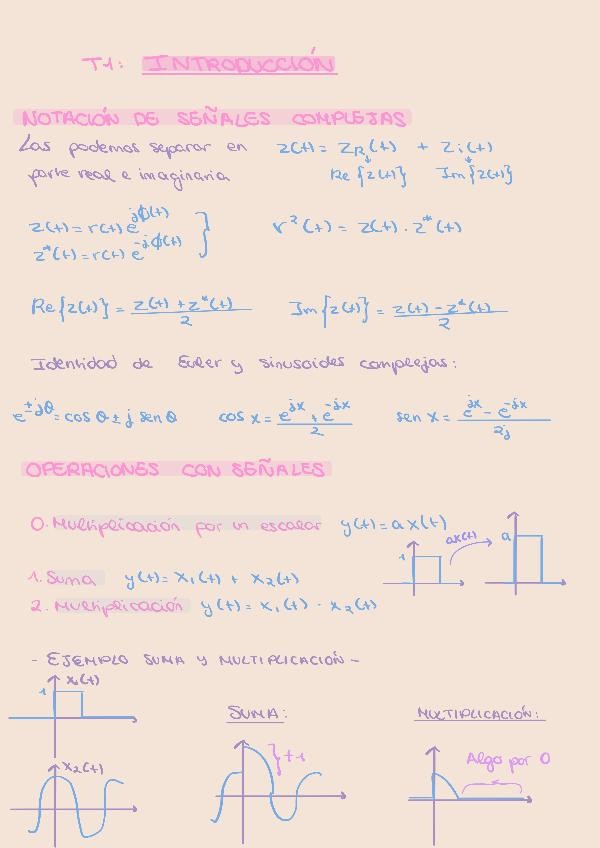 T1: INTRODUCCIÓN
NOTACIÓN DE SEÑALES COMPLEJAS
Las podemos separar en z(t) = z_R(t) + z_i(t)
parte real e imaginaria Re{z(t)} Im{z(t)}
z(t) = r(t) e^{jϕ(t)}
z*(t) = r(t) e^{-jϕ(t)}
r²(t) = z(t) · z*(t)
Re{z(t)} = (z(t) + z*(t))/2 Im{z(t)} = (z(t) - z*(t))/2
Identidad de Euler y sinusoides complejas:
e^{±jθ} = cos θ ± j sen θ cos x = (e^{jx} + e^{-jx})/2 sen x = (e^{jx} - e^{-jx})/2j
OPERACIONES CON SEÑALES
0. Multiplicación por un escalar y(t) = a x(t)
1 ax(t) a
1. Suma y(t) = x₁(t) + x₂(t)
2. Multiplicación y(t) = x₁(t) · x₂(t)
- EJEMPLO SUMA Y MULTIPLICACIÓN -
1 x₁(t)
SUMA: MULTIPLICACIÓN:
x₂(t) }+1 Algo por 0